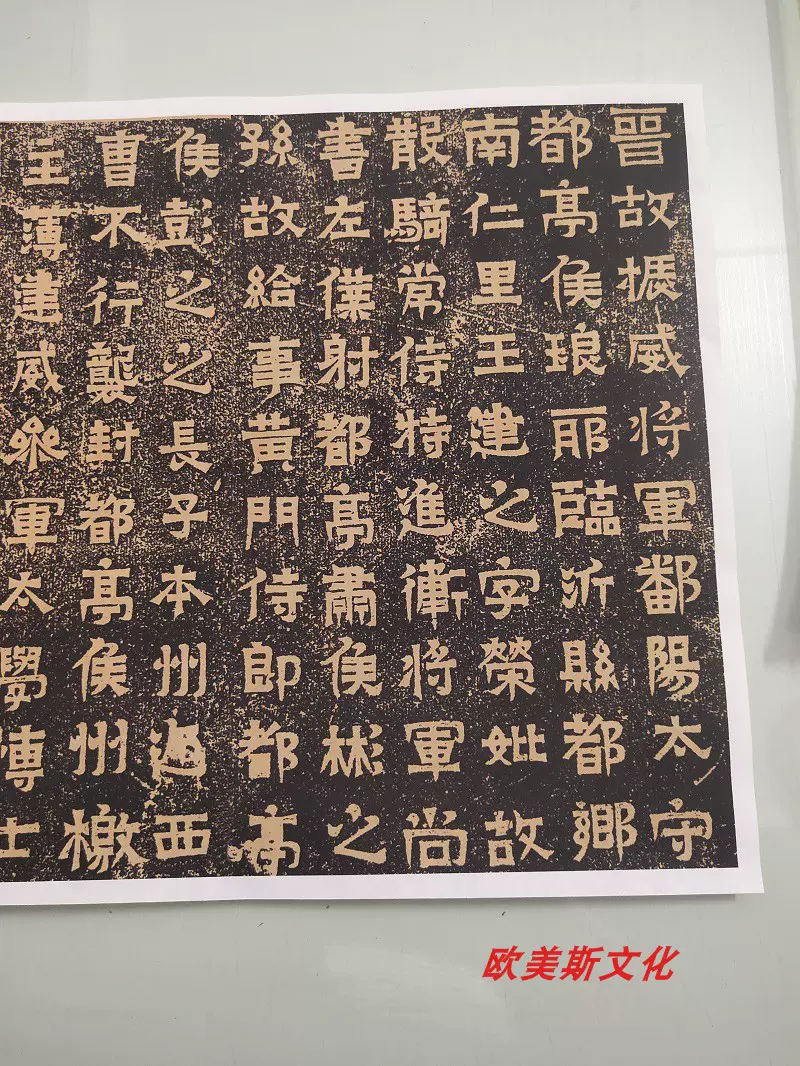 晉故振威将軍鄱陽太守
都亭侯琅耶臨沂縣都鄉
南仁里王建之字榮妣故
散騎常侍特進衛将軍尚
書左僕射都亭肅侯彬之
孫故給事黄門侍郎都亭
侯彭之之長子本州迎西
曹不行襲封都亭侯州檄
主薄建威參軍太學博士
欧美斯文化